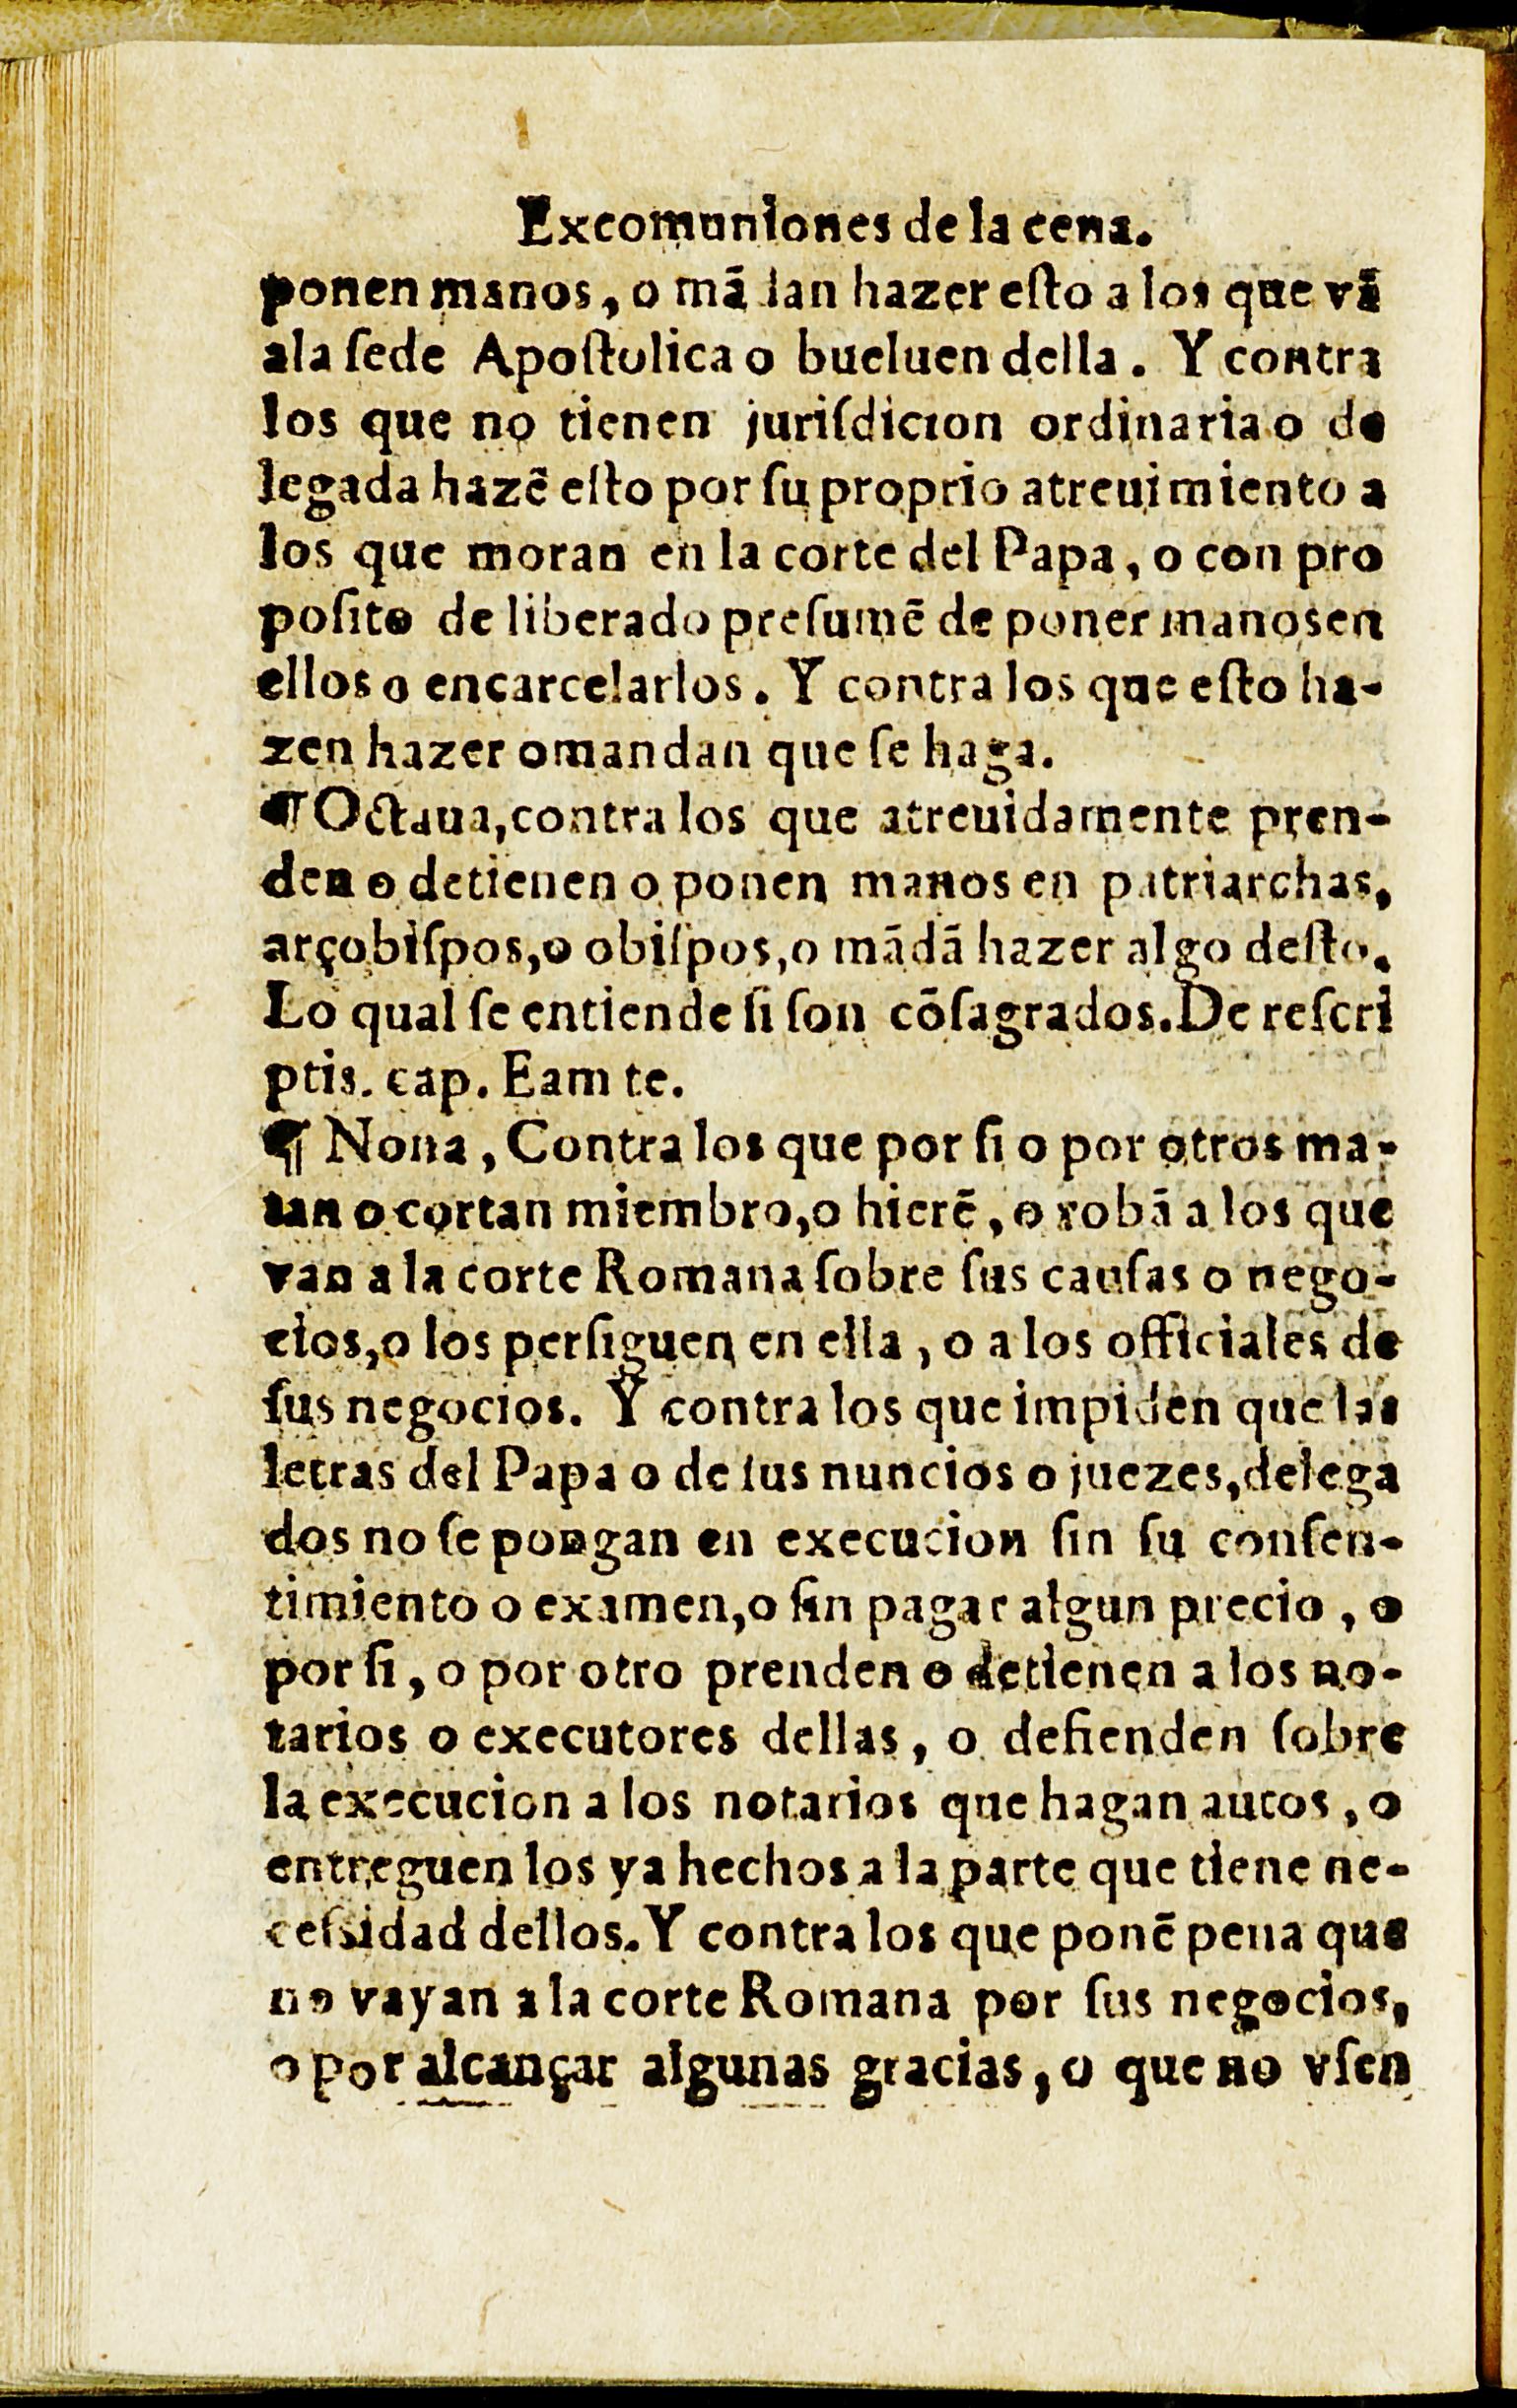 Excomuniones de la cena.
ponen manos, o mãdan hazer eſto a los que vã
ala ſede Apoſtolica o bueluen della. Y contra
los que no tienen juriſdicion ordinaria o de
legada hazẽ eſto por ſu proprio atreuimiento a
los que moran en la corte del Papa, o con pro
poſito de liberado preſumẽ de poner manos en
ellos o encarcelarlos. Y contra los que eſto ha-
zen hazer o mandan que ſe haga.
¶ Octaua, contra los que atreuidamente pren-
den o detienen o ponen manos en patriarchas,
arçobiſpos, o obiſpos, o mãdã hazer algo deſto.
Lo qual ſe entiende ſi ſon cõſagrados. De reſcri
ptis. cap. Eam te.
¶ Nona, Contra los que por ſi o por otros ma-
tan o cortan miembro, o hierẽ, o robã a los que
van a la corte Romana ſobre ſus cauſas o nego-
cios, o los perſiguen en ella, o a los officiales de
ſus negocios. Y contra los que impiden que las
letras del Papa o de ſus nuncios o juezes, delega
dos no ſe pongan en execucion ſin ſu conſen-
timiento o examen, o ſin pagar algun precio, o
por ſi, o por otro prenden o detienen a los no-
tarios o executores dellas, o defienden ſobre
la execucion a los notarios que hagan autos, o
entreguen los ya hechos a la parte que tiene ne-
ceſsidad dellos. Y contra los que ponẽ pena que
no vayan a la corte Romana por ſus negocios,
o por alcançar algunas gracias, o que no vſen